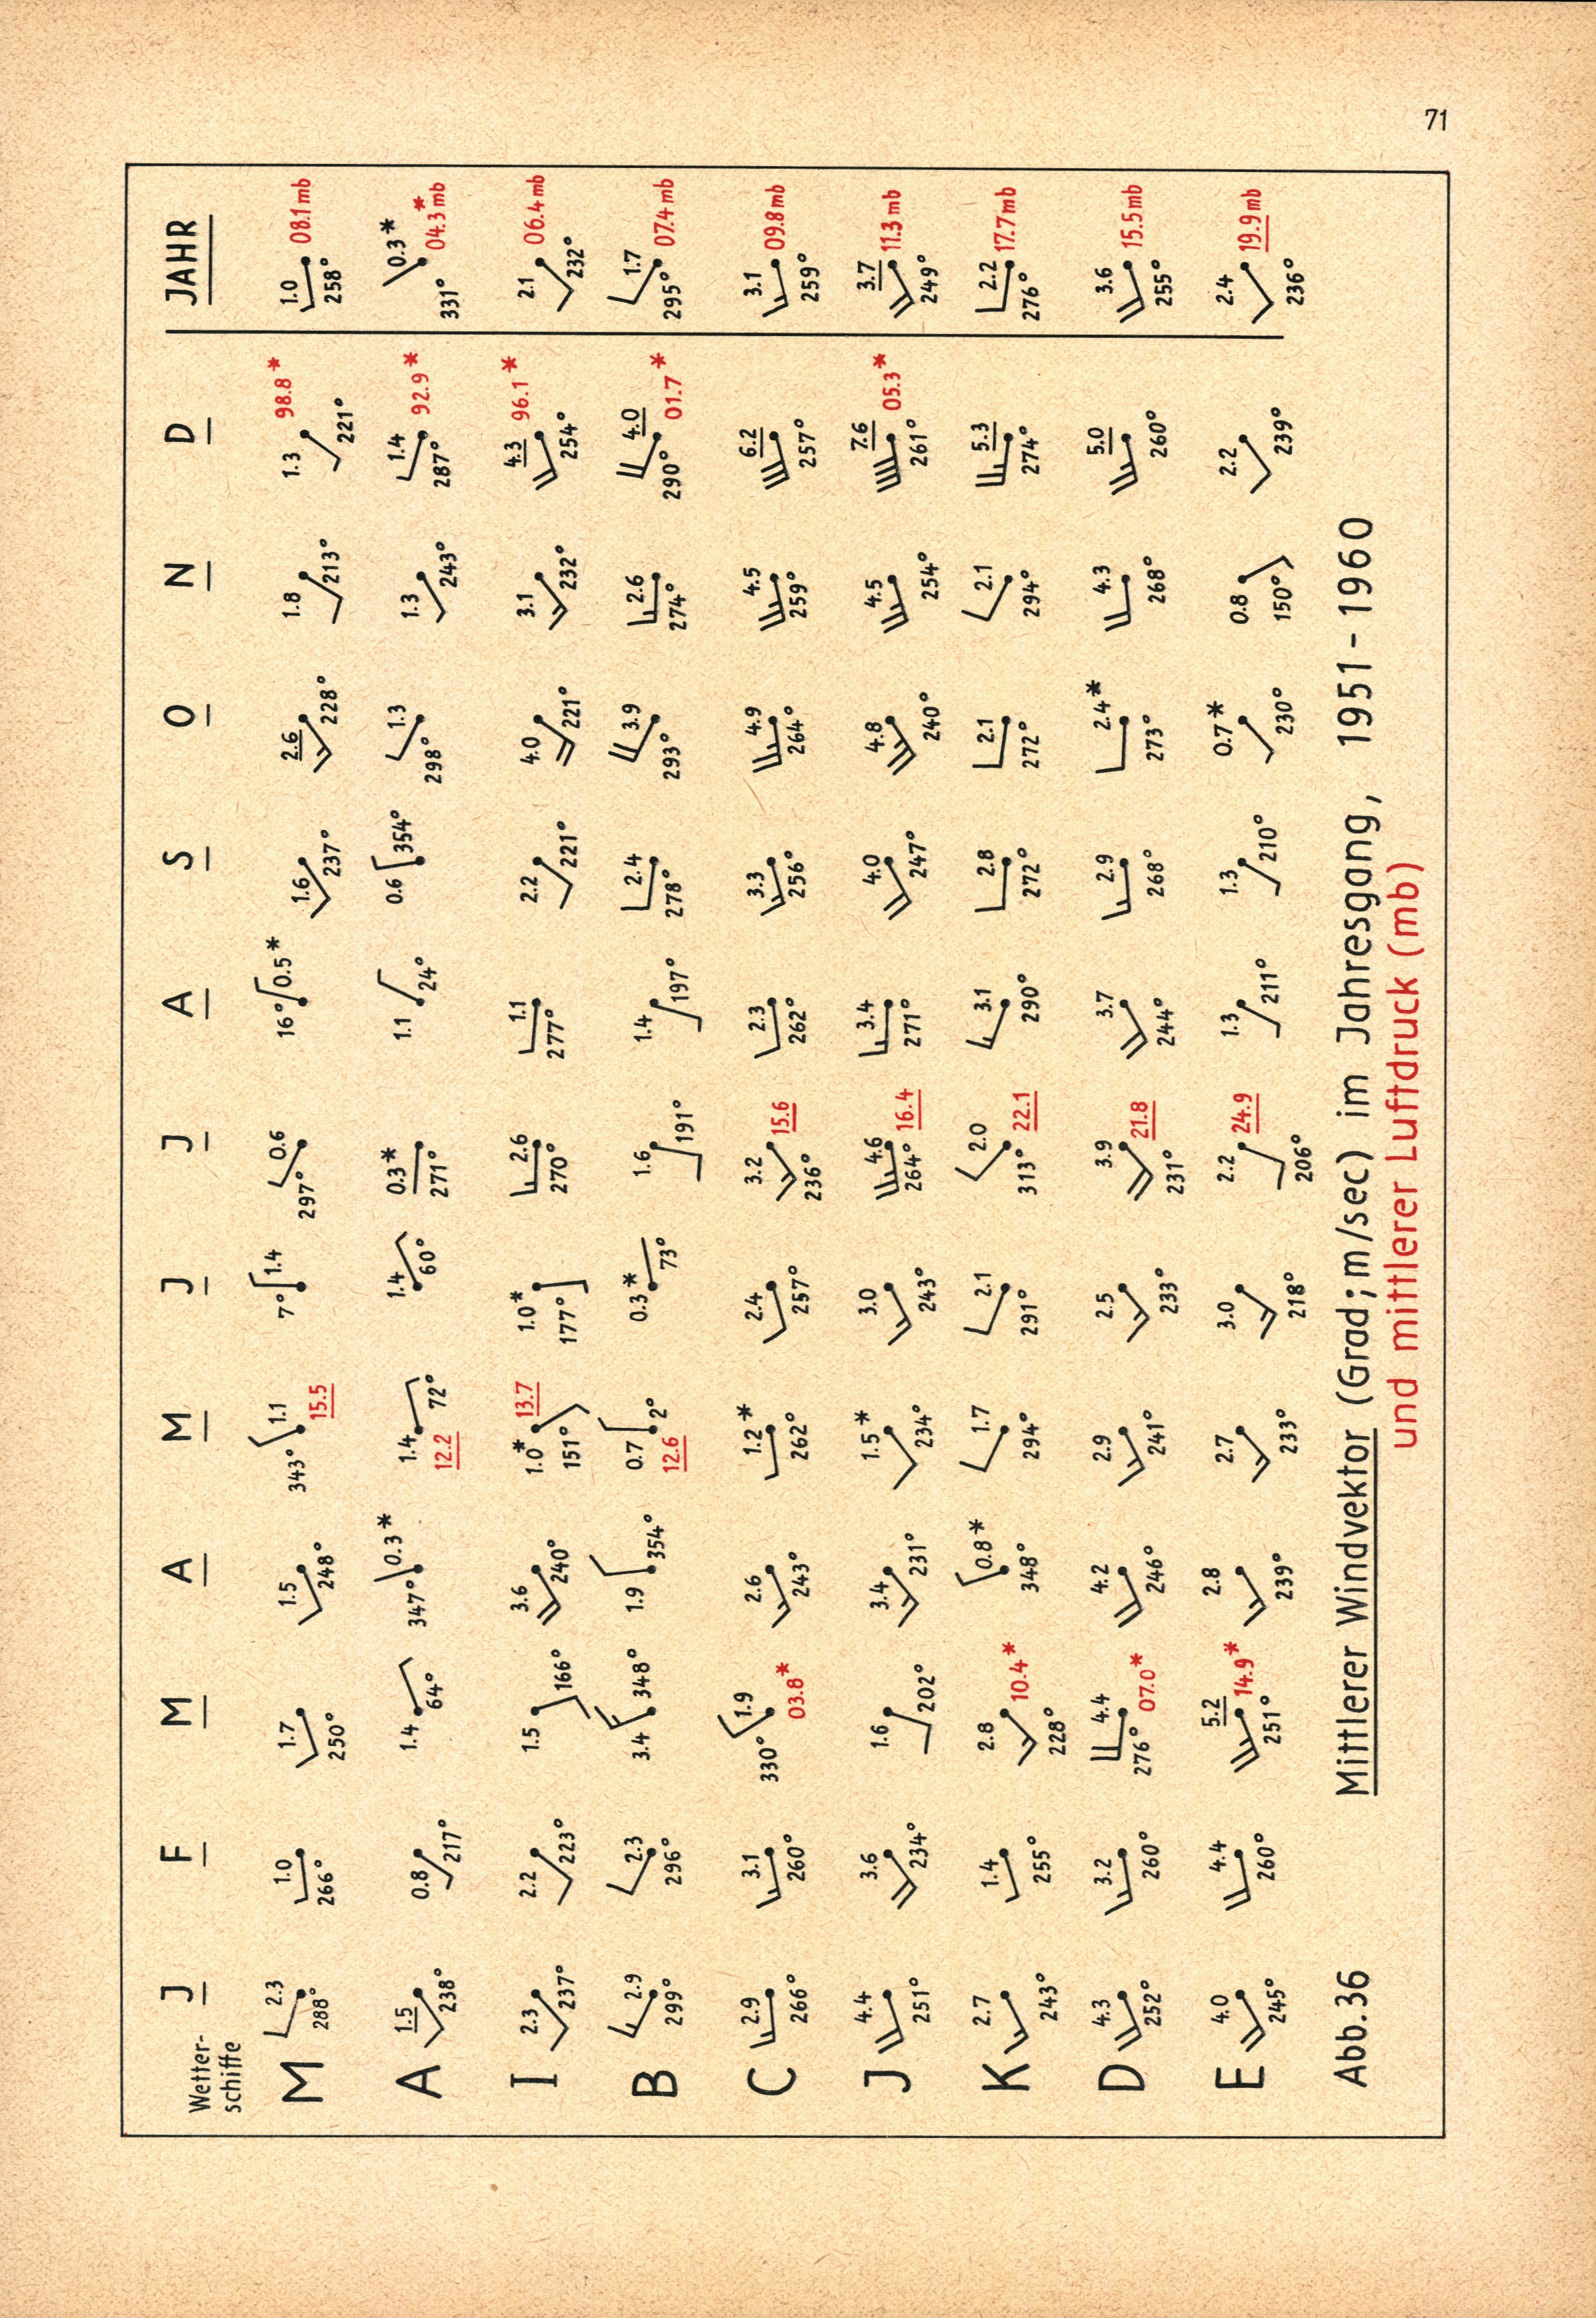 71
Wetter-
schiffe
J F M A M J J A S O N D JAHR
M 2.3 288° 1.0 266° 1.7 250° 1.5 248° 343° 1.1 15.5 7° 1.4 297° 0.6 16° 0.5* 1.6 237° 2.6 228° 1.8 213° 1.3 221° 98.8* 1.0 258° 08.1 mb
A 1.5 238° 0.8 217° 1.4 64° 347° 0.3* 1.4 72° 12.2 1.4 60° 0.3* 271° 1.1 24° 0.6 354° 298° 1.3 1.3 243° 1.4 287° 92.9* 331° 0.3* 04.3* mb
I 2.3 237° 2.2 223° 1.5 166° 3.6 240° 1.0* 151° 13.7 1.0* 177° 2.6 270° 1.1 277° 2.2 221° 4.0 221° 3.1 232° 4.3 254° 96.1* 2.1 232° 06.4 mb
B 2.9 299° 2.3 296° 3.4 348° 1.9 354° 0.7 2° 12.6 0.3* 73° 1.6 191° 1.4 197° 2.4 278° 3.9 293° 2.6 274° 4.0 290° 01.7* 1.7 295° 07.4 mb
C 2.9 266° 3.1 260° 330° 1.9 03.8* 2.6 243° 1.2* 262° 2.4 257° 3.2 236° 15.6 2.3 262° 3.3 256° 4.9 264° 4.5 259° 6.2 257° 3.1 259° 09.8 mb
J 4.4 251° 3.6 234° 1.6 202° 3.4 231° 1.5* 234° 3.0 243° 4.6 264° 16.4 3.4 271° 4.0 247° 4.8 240° 4.5 254° 7.6 261° 05.3* 3.7 249° 11.3 mb
K 2.7 243° 1.4 255° 2.8 228° 10.4* 0.8* 348° 1.7 294° 2.1 291° 2.0 313° 22.1 3.1 290° 2.8 272° 2.1 272° 2.1 294° 5.3 274° 2.2 276° 17.7 mb
D 4.3 252° 3.2 260° 4.4 276° 07.0* 4.2 246° 2.9 241° 2.5 233° 3.9 231° 21.8 3.7 244° 2.9 268° 2.4* 273° 4.3 268° 5.0 260° 3.6 255° 15.5 mb
E 4.0 245° 4.4 260° 5.2 251° 14.9* 2.8 239° 2.7 233° 3.0 218° 2.2 206° 24.9 1.3 211° 1.3 210° 0.7* 230° 0.8 150° 2.2 239° 2.4 236° 19.9 mb
Abb.36 Mittlerer Windvektor (Grad; m/sec) im Jahresgang, 1951-1960
und mittlerer Luftdruck (mb)